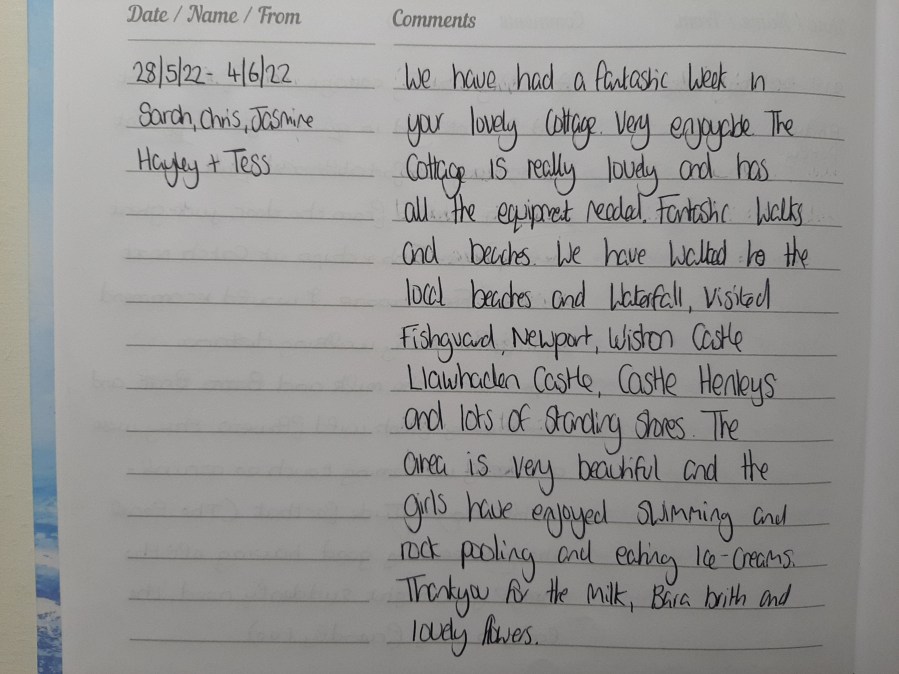 Date / Name / From
Comments
28/5/22 - 4/6/22
Sarah, Chris, Jasmine
Hayley + Tess
We have had a fantastic week in
your lovely cottage. Very enjoyable. The
Cottage is really lovely and has
all the equipment needed. Fantastic walks
and beaches. We have walked to the
local beaches and waterfall, visited
Fishguard, Newport, Wiston Castle
Llawhaden Castle, Castle Henleys
and lots of standing stones. The
area is very beautiful and the
girls have enjoyed swimming and
rock pooling and eating Ice-creams.
Thankyou for the milk, Bara brith and
lovely flowers.